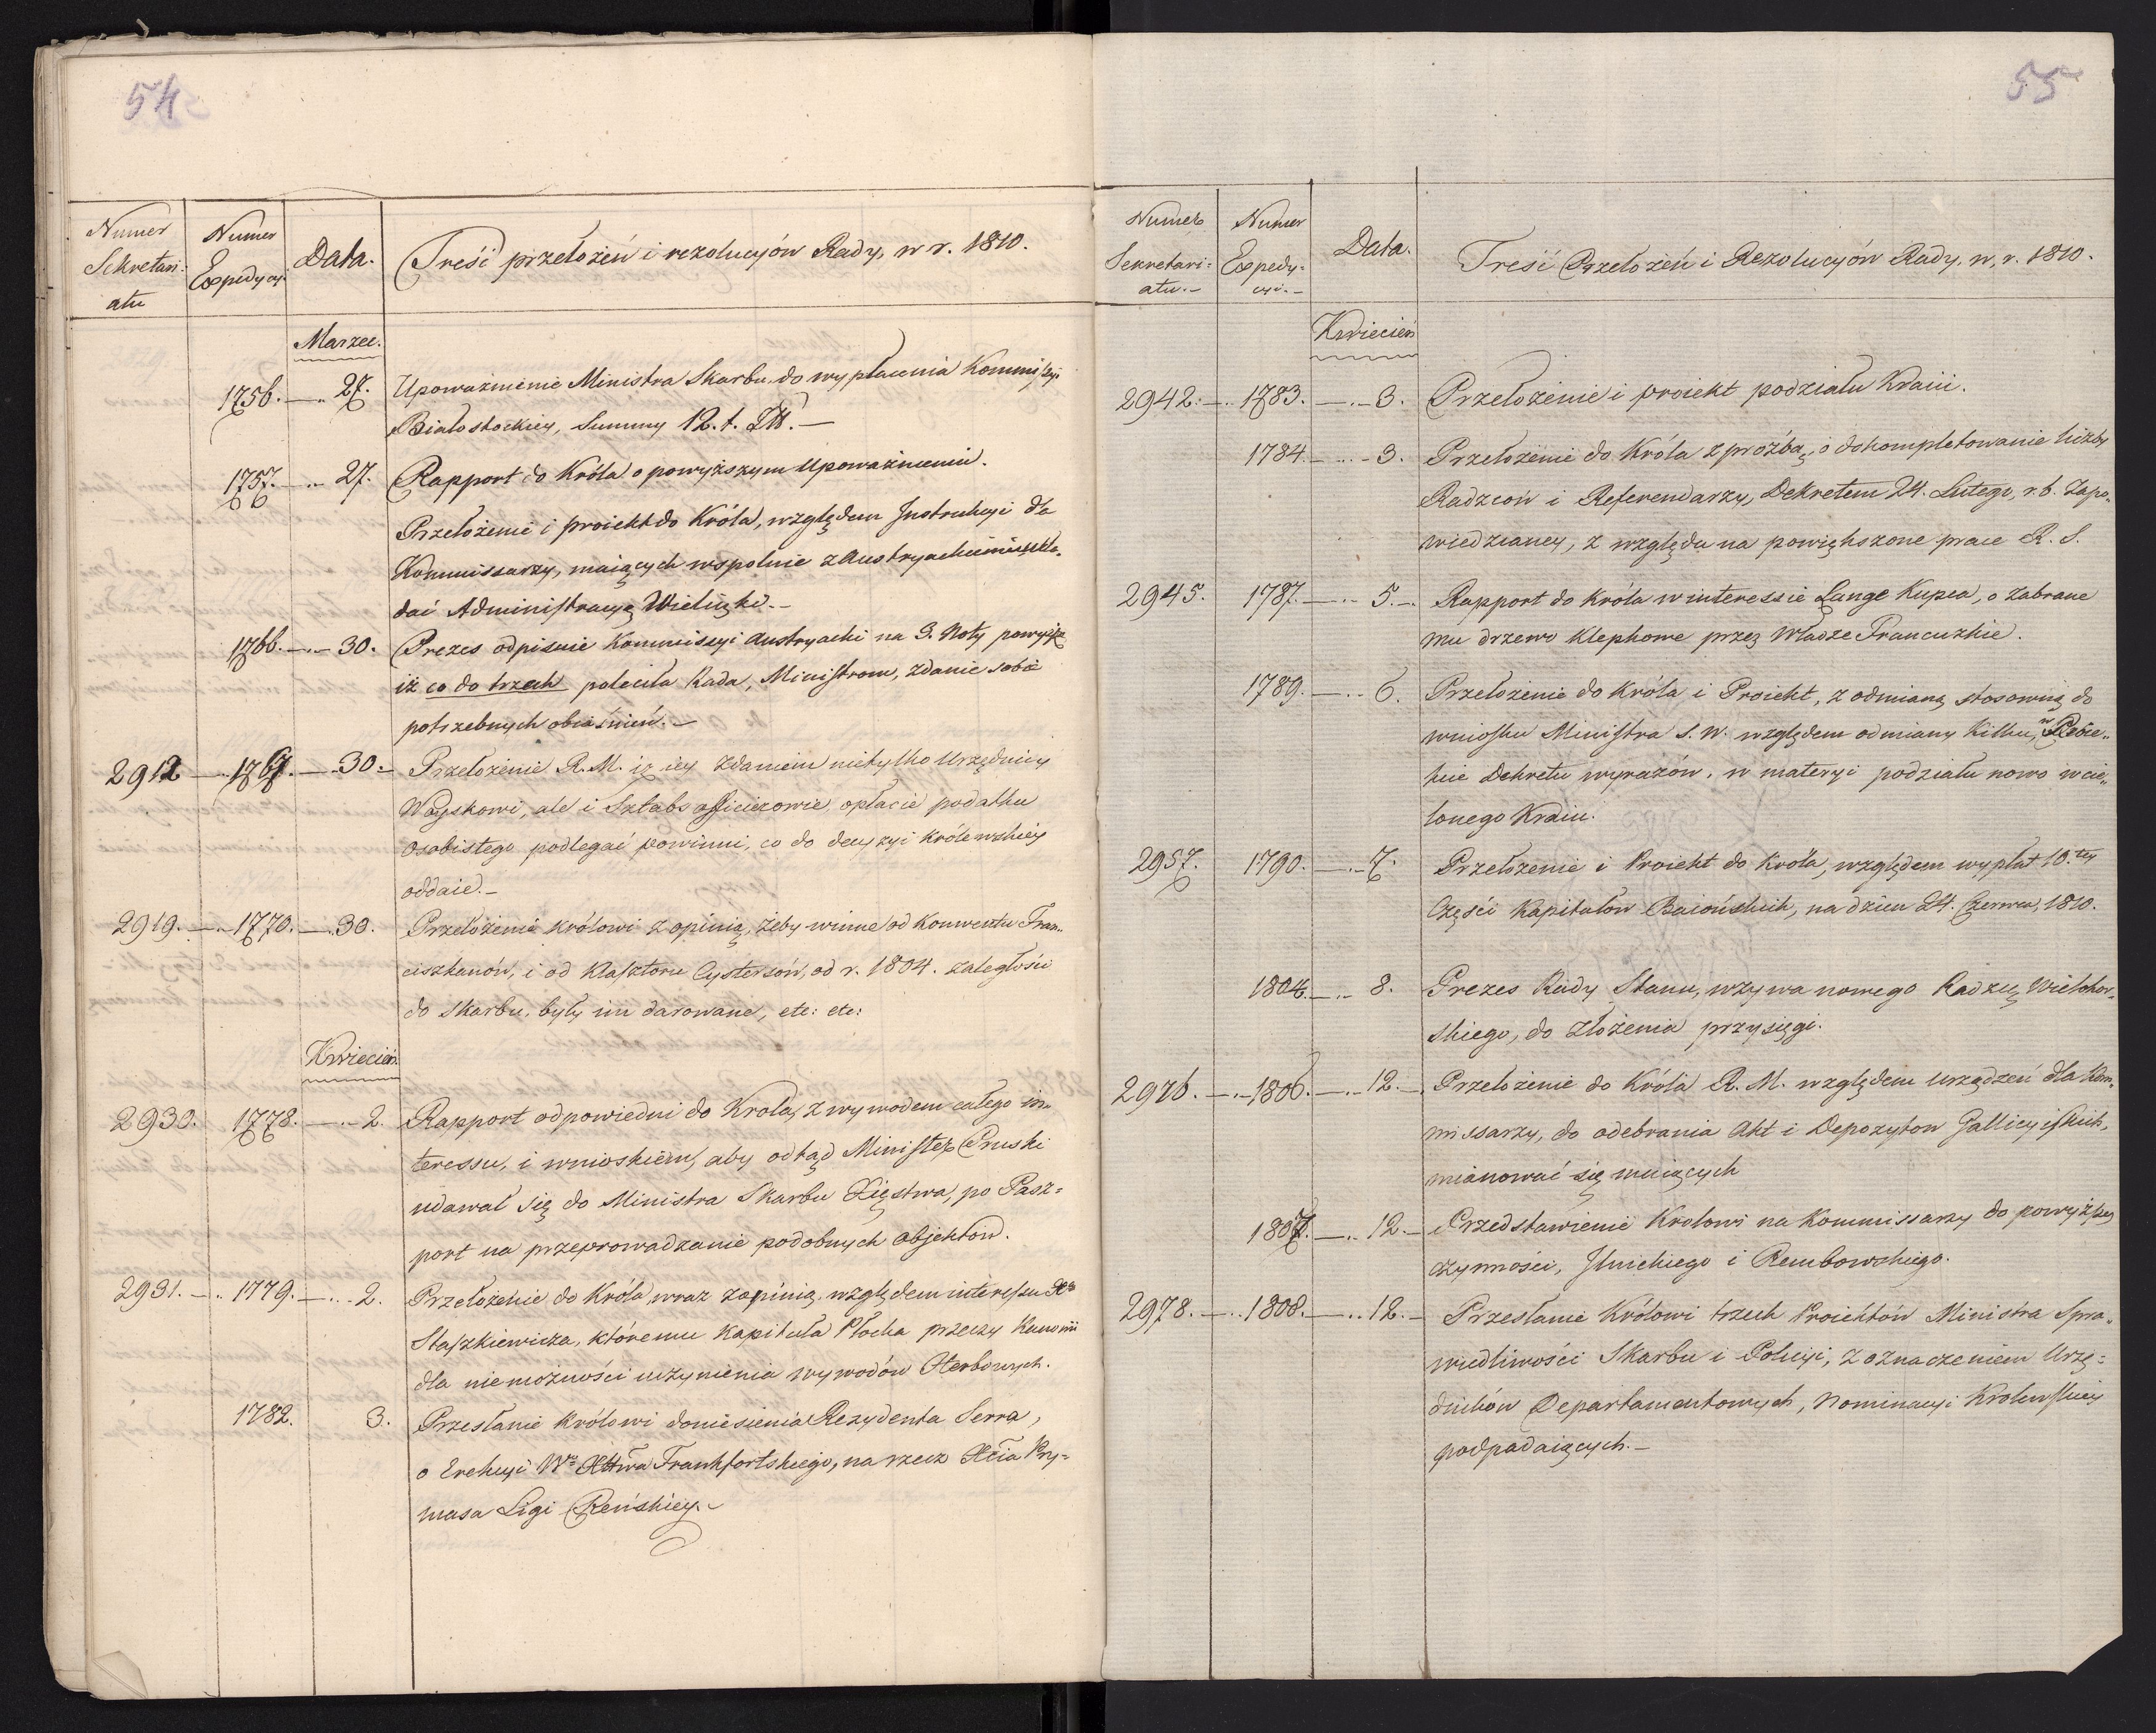 54
Numer Sekretari- atu
Numer Expedycyi
Data.
Treść przełożeń i rezolucyów Rady, w r. 1810.
Marzec.
1756. — .. 27. Upoważnienie Ministra Skarbu, do wypłacenia Kommissyi
Białostockiey, Summy 12. t. Zł. —
1757. — .. 27. Rapport do Króla o powyższym Upoważnieniu.
Przełożenie i proiekt do Króla, względem Instrukcyi dla
Kommissarzy, maiących wspolnie z Austryackiemi układać
dać Administracyą Wieliczki. —
1766. — .. — 30. Prezes odpisuie Kommissyi Austryacki na 3. Noty powyższe
iż co do trzech poleciła Rada, Ministrom, zdanie sobie
potrzebnych obiaśnień. —
2912 — .. 1767. — .. 30. — Przełożenie R. M. iż iey zdaniem nietylko Urzędnicy
Woyskowi, ale i Sztabs officierowie opłacie podatku
osobistego podlegać powinni, co do decyzyi królewskiey
oddaie. —
2919. — .. 1770. — .. 30. Przełożenie królowi z opinią, żeby winne od Konwentu Fran..
ciszkanów, i od Klasztoru Cystersów, od r. 1804. zaległości
do Skarbu, były im darowane, etc: etc:
Kwiecień
2930. 1778. — .. 2. Rapport odpowiedni do Krola, z wywodem całego in-
teressu, i wnioskiem, aby odtąd Minister Pruski
udawał się do Ministra Skarbu Xięstwa, po Pasz=
port na przeprowadzanie podobnych objektów.
2931. — .. 1779. — .. 2. Przełożenie do Króla, wraz z opinią, względem interessu Xa
Staszkiewicza, któremu Kapituła Płocka przeczy Kanonii
dla niemożności uczynienia wywodów Herbowych.
1782. 3. Przesłanie Królowi doniesienia Rezydenta Serra,
o Erekcyi Wo Xttwa Frankfortskiego, na rzecz Xcia Pry=
masa Ligi Reńskiey. —
55
Numer Sekretari= atu. —
Numer Expedy= cyi. —
Data.
Treść Przełożeń i Rezolucyów Rady, w, r. 1810.
Kwiecień
2942. — .. 1783. — .. — 3. Przełożenie i proiekt podziału Kraiu.
1784. — .. — 3. Przełożenie do Króla z prożbą, o dokompletowanie liczby
Radzców i Referendarzy, Dekretem 24. Lutego, r. b. Zapo..
wiedzianey, z względu na powiększone prace R. S.
2945. 1787. — .. 5. — Rapport do Króla w interessie Lange Kupca, o zabrane
mu drzewo Klepkowe przez Władze Francuzkie.
1789. — .. 6. Przełożenie do Króla i Proiekt, z odmianą stosowną do
wniosku Ministra S. W. względem odmiany Kilku, w Proie..
kcie Dekretu wyrazów, w materyi podziału nowo wcie..
lonego Kraiu.
2957. 1790. — .. 7. Przełożenie i Proiekt do Króla, względem wypłat 10.tey
Części Kapitałow Baiońskich, na dzień 24. Czerwca, 1810.
1804. — .. 8. Prezes Rady Stanu, wzywa nowego Radzcę Wielhor..
skiego, do złożenia przysięgi.
2976. — .. — 1806. — .. — 12. — Przełożenie do Króla R. M. względem urządzeń dla Kom..
missarzy, do odebrania Akt i Depozytow Gallicyiskich,
mianować się maiących
1807. — .. 12. — Przedstawienie Krolowi na Kommissarzy do powyższey
czynności, Ilnickiego i Rembowskiego.
2978. — .. 1808. — .. 12. — Przesłanie Królowi trzech Proiektów Ministra Spra..
wiedliwości Skarbu i Policyi, z oznaczeniem Urzę=
dników Departamentowych, Nominacyi Krolewskiey
podpadaiących. —